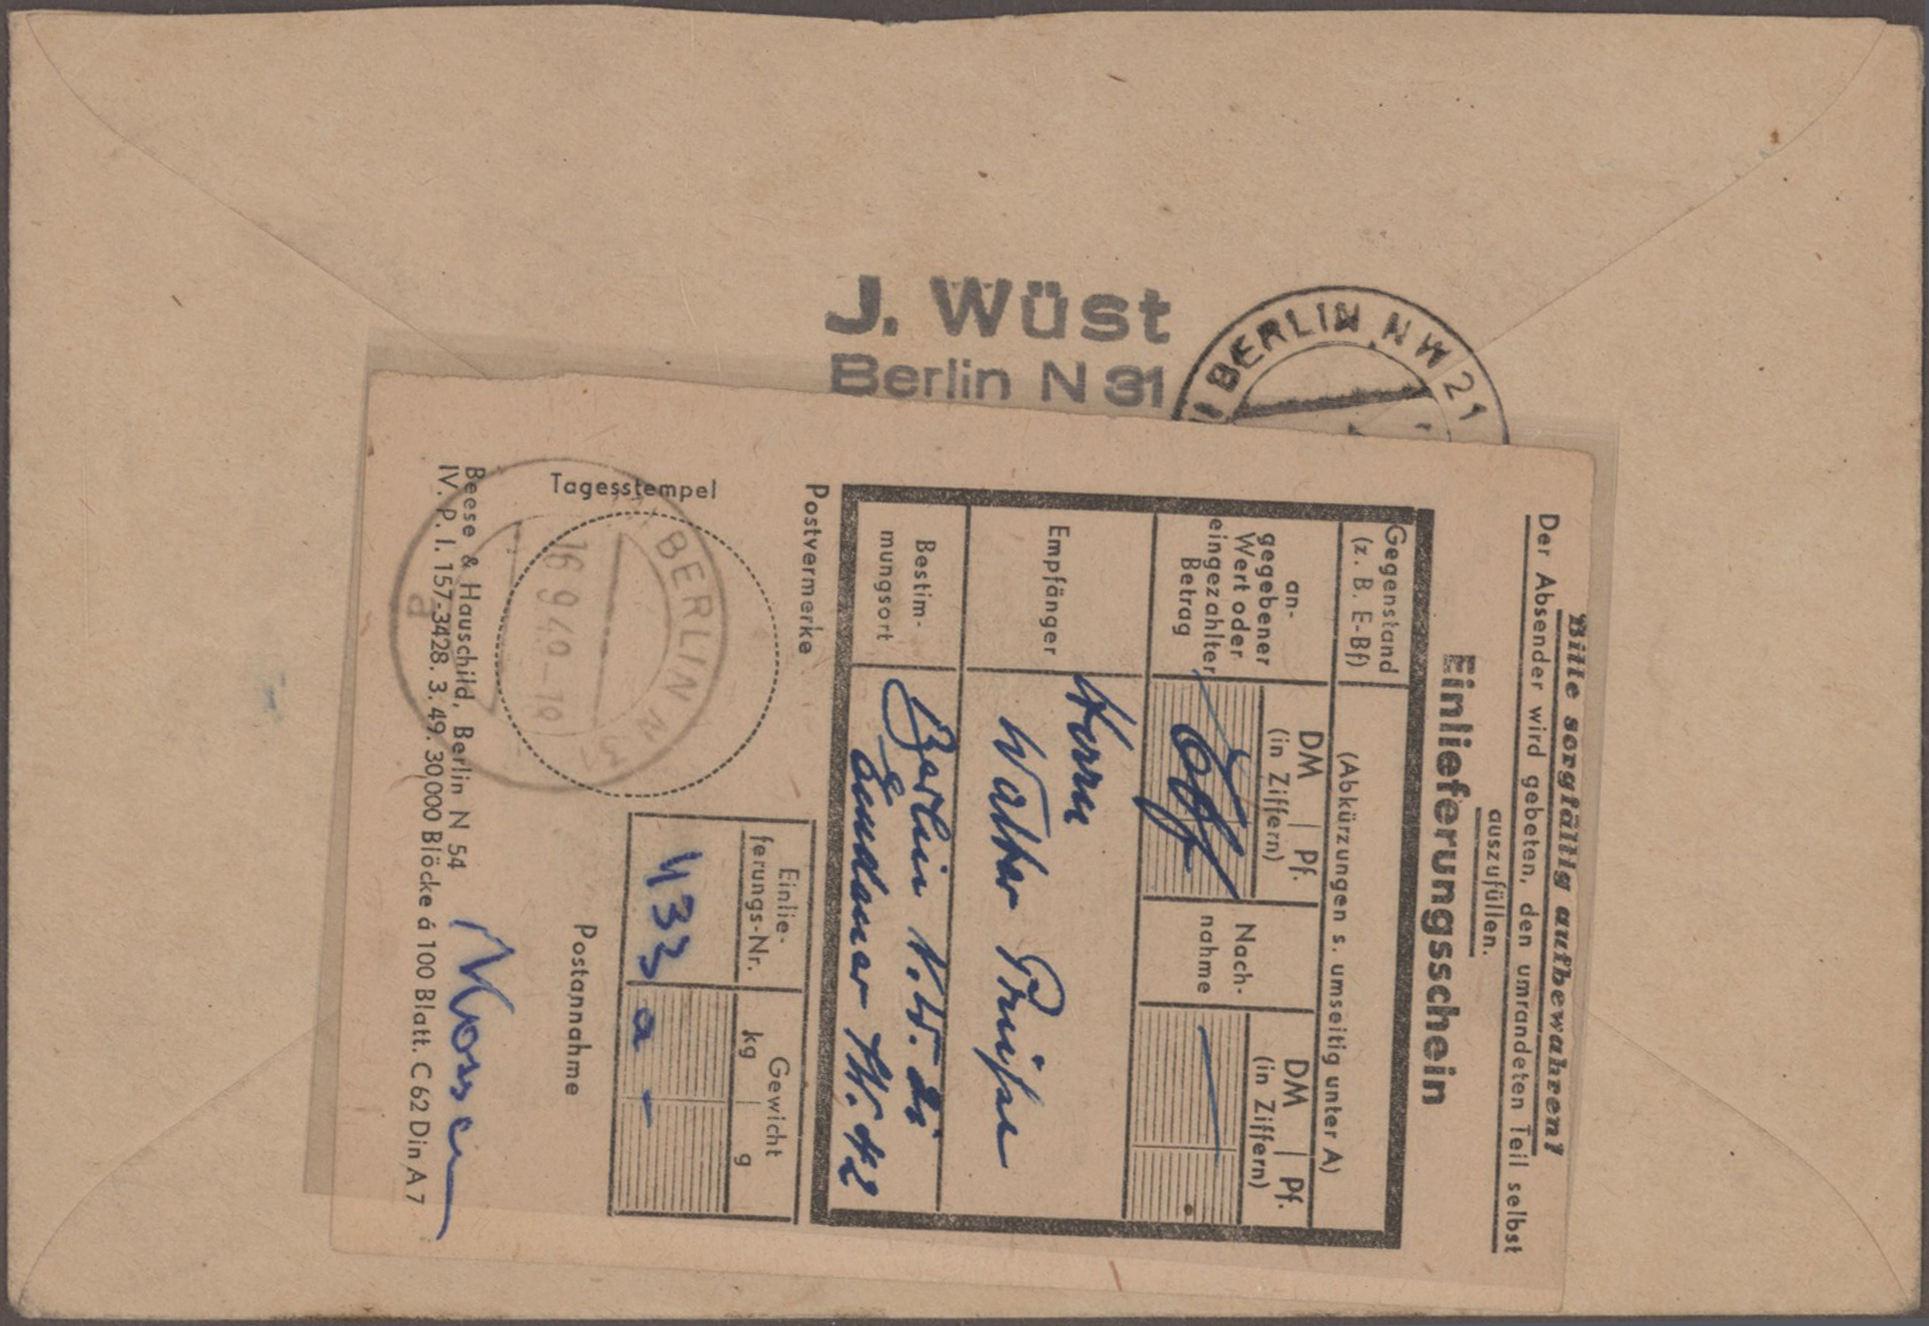 J. Wüst
Berlin N 31
BERLIN NW 21
Bitte sorgfältig aufbewahren!
Der Absender wird gebeten, den umrandeten Teil selbst
auszufüllen.
Einlieferungsschein
Gegenstand
(z. B. E-Bf)
(Abkürzungen s. umseitig unter A)
an-
gegebener
Wert oder
eingezahlter
Betrag
DM | Pf.
(in Ziffern)
Nach-
nahme
DM | Pf.
(in Ziffern)
Empfänger
Herrn
Walter
Bestim-
mungsort
Berlin N.W. 21
42
Postvermerke
Tagesstempel
BERLIN N 31
16 9 49-18
Einlie-
ferungs-Nr.
433 a
Gewicht
kg | g
Postannahme
Beese & Hauschild, Berlin N 54
IV. P. I. 157-3428. 3. 49. 30 000 Blöcke á 100 Blatt. C 62 Din A 7